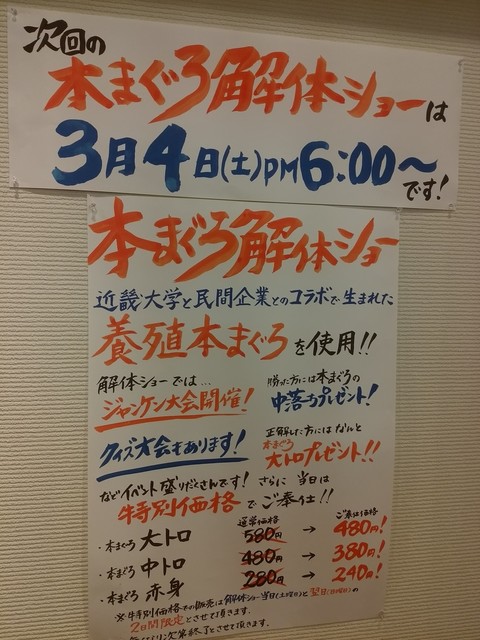 次回の
本まぐろ解体ショーは
3月4日(土)PM6:00〜
です!
本まぐろ解体ショー
近畿大学と民間企業とのコラボで生まれた
養殖本まぐろを使用!!
解体ショーでは…
ジャンケン大会開催!
勝った方には本まぐろの
中落ちプレゼント!
クイズ大会もあります!
正解した方にはなんと
本まぐろ
大トロプレゼント!!
などイベント盛りだくさんです! さらに 当日は
特別価格でご奉仕!!
通常価格 ご奉仕価格
・本まぐろ 大トロ 580円 → 480円!
・本まぐろ 中トロ 480円 → 380円!
・本まぐろ 赤身 280円 → 240円!
※特別価格での販売は解体ショー当日(土曜日)と翌日(日曜日)の
2日間限定とさせて頂きます。
次第終了とさせて頂きます。